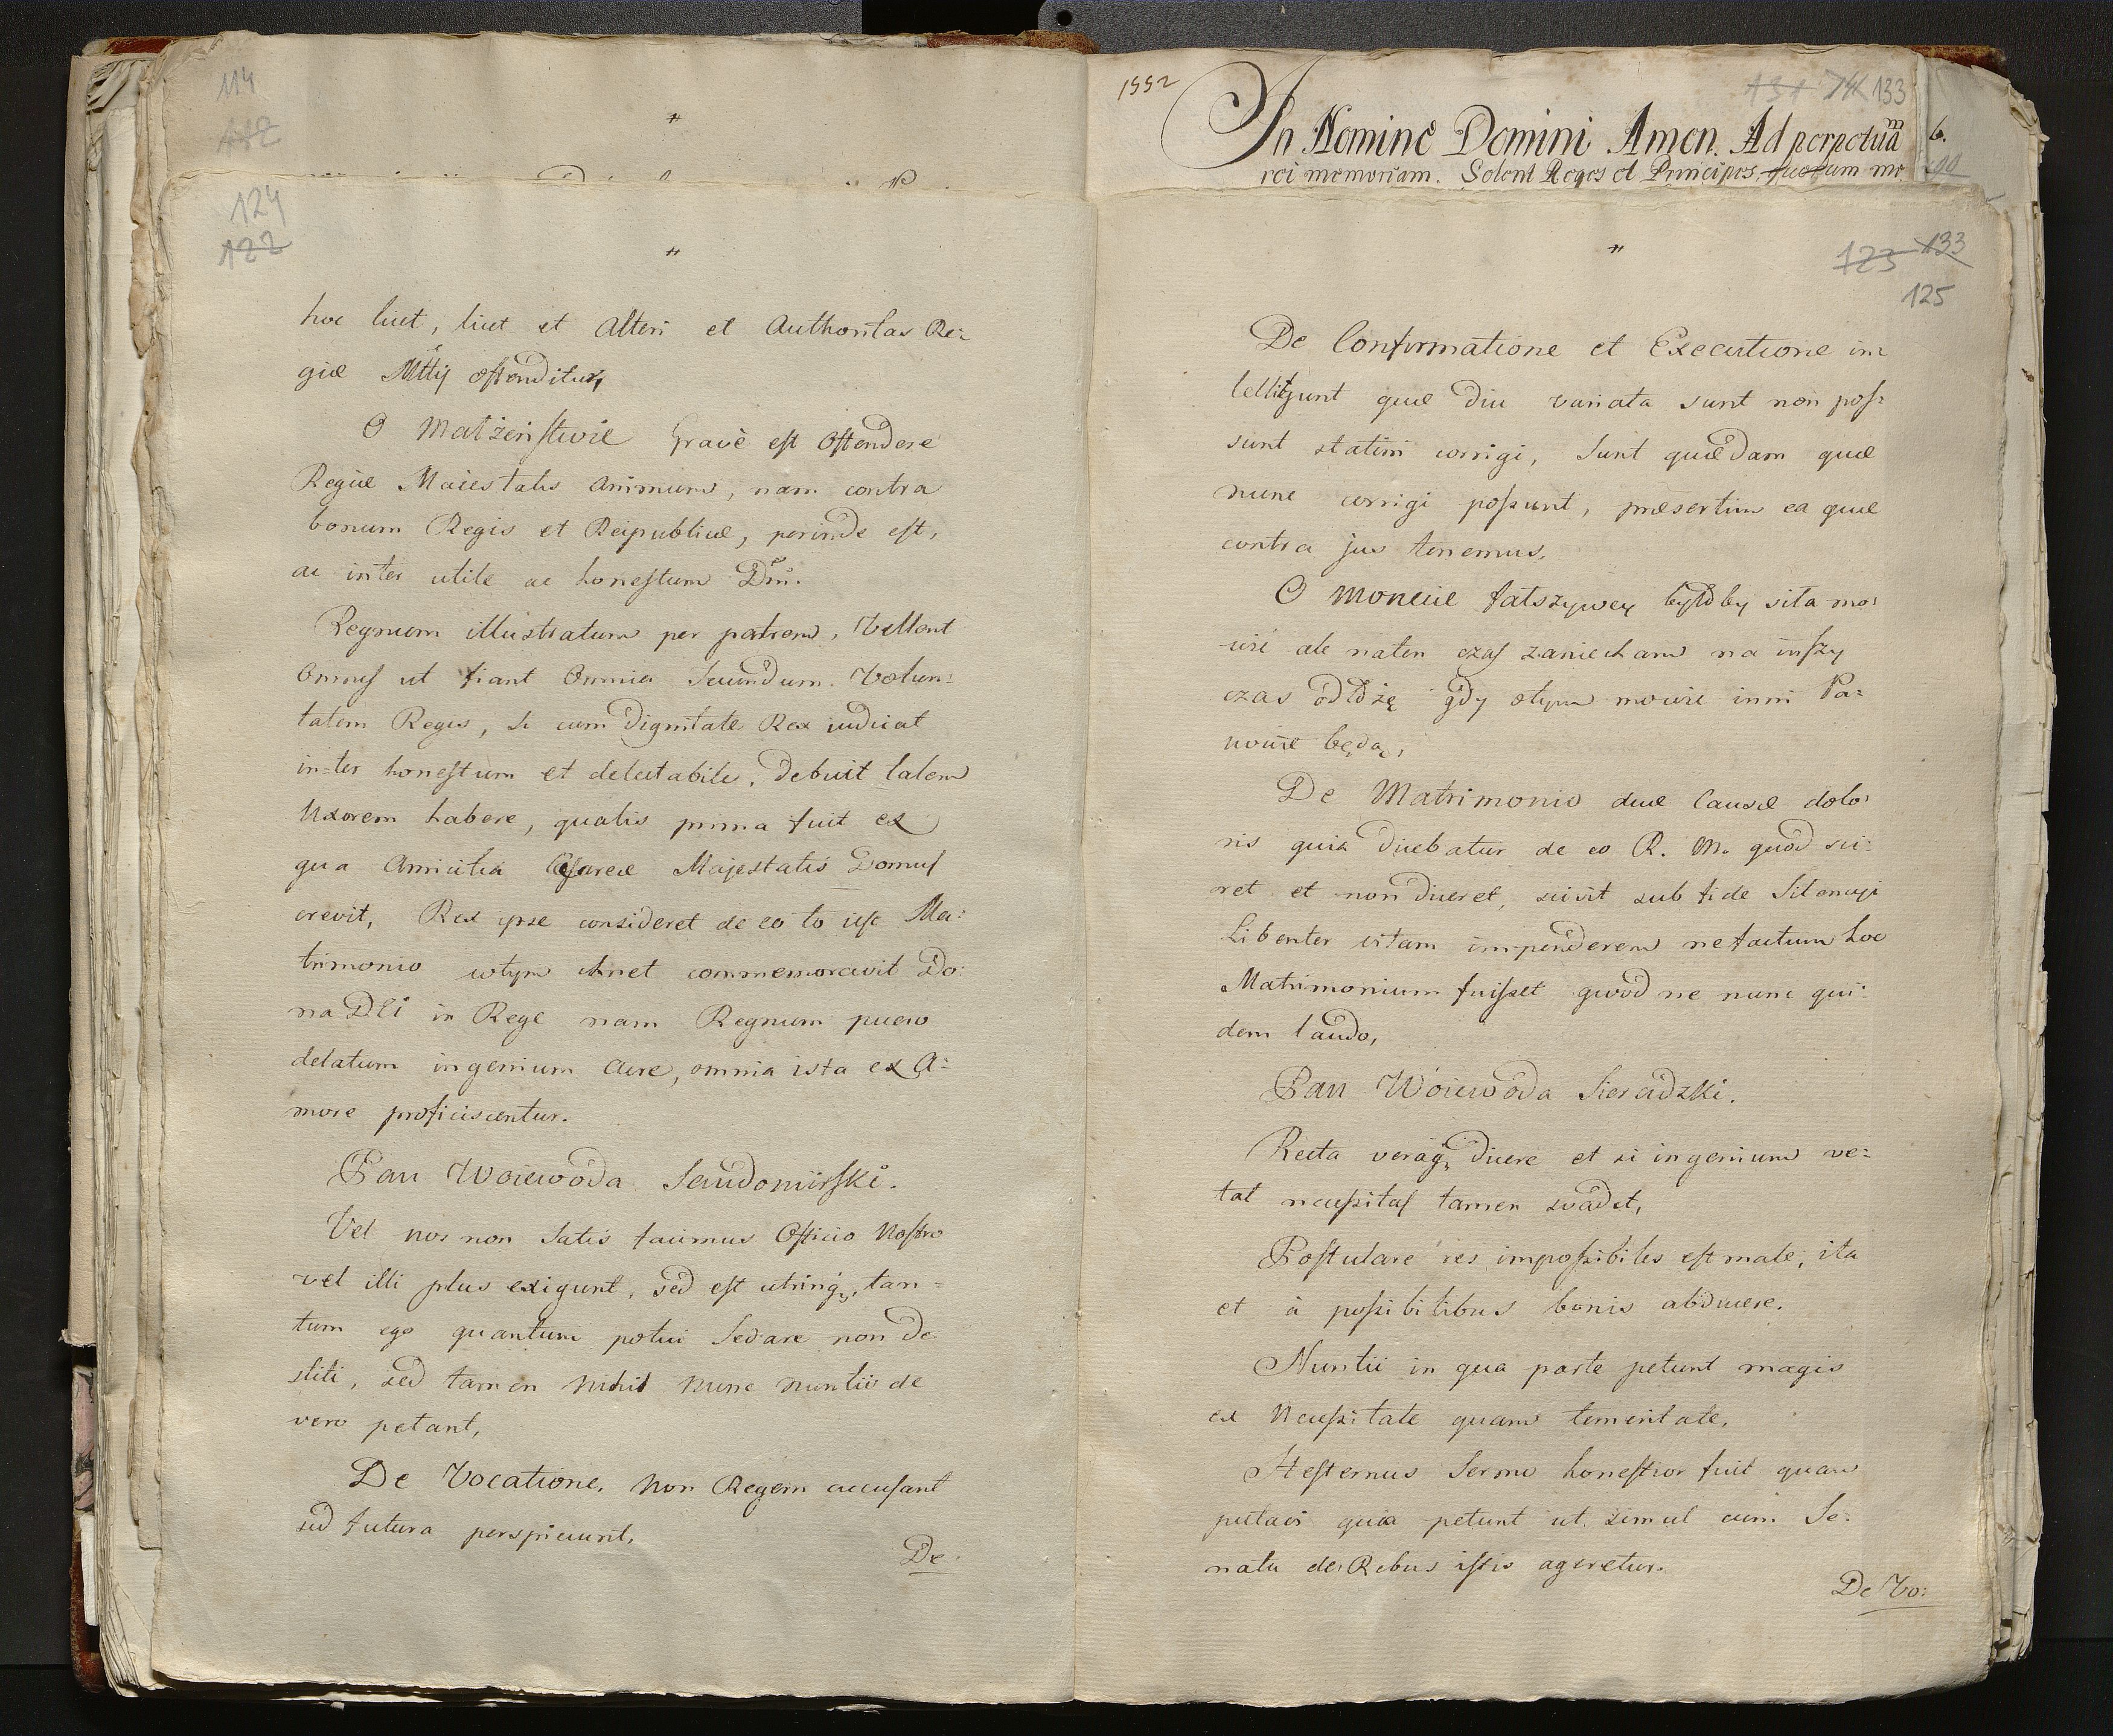 114
112
"
124
122
"
hoc licet, licet et Alteri et Authoritas Re:
giæ Mttis offenditur,
O Małżeństwie Grave est Offendere
Regiæ Maiestatis Animum, nam contra
bonum Regis et Reipublicæ, perinde est,
ac inter utile ac honestum Dm̃.
Regnum illustratum per patrem, Vellent
Omnes ut fiant Omnia Secundum Volun:
tatem Regis, Si cum dignitate Rex iudicat
in=ter honestum et delectabile, Debuit talem
Uxorem habere, qualis prima fuit ex
qua Amicitia Cesareæ Majestatis Domus
crevit, Rex ipse consideret de eo to iest Ma:
trimonio wtym chnet commemoravit Do:
na DEi in Rege nam Regnum puero
delatum ingenium Acre, omnia ista ex A:
more proficiscentur.
Pan Woiewoda Sendomirski.
Vel nos non Satis facimus Officio Nostro
vel illi plus exigunt, sed est utrinq, tan=
tum ego quantum potui Sedare non de
stiti, sed tamen Nihil Nunc Nuntii de
vero petant,
De Vocatione, Non Regem accusant
sed futura perspiciunt,
De
1552
131 74 133
In Nomine Domini Amen. Ad perpetuam
rei memoriam. Solent Reges et Principes quorum me
6.
190
"
123 133
125
De Confirmatione et Executione in
telligunt quæ diu variata sunt non pos:
sunt statim corrigi, Sunt quædam quæ
nunc corrigi possunt, præsertim ea quæ
contra jus tenemus,
O Monecie fałszywey byłoby siła mo:
wić ale naten czas zaniecham na inszy
czas odłożę gdy otym mowić inni Pa:
nowie będą,
De Matrimonio duæ Causæ dolo:
ris quia dicebatur de eo R. M. quod sci:
ret et non diceret, scivit sub fide Silencyi
Libenter vitam impenderem ne factum hoc
Matrimonium fuisset quod ne nunc qui:
dem laudo,
Pan Woiewoda Sieradzki.
Recta veraq, dicere et si ingenium ve:
tat necessitas tamen svadet,
Postulare res impossibiles est male, ita
et à possibilibus bonis abducere.
Nuntii in qua parte petunt magis
ex Necessitate quam temeritate,
Hesternus Sermo honestior fuit quam
putavi quia petunt ut simul cum Se:
natu de Rebus istis ageretur.
De Vo: